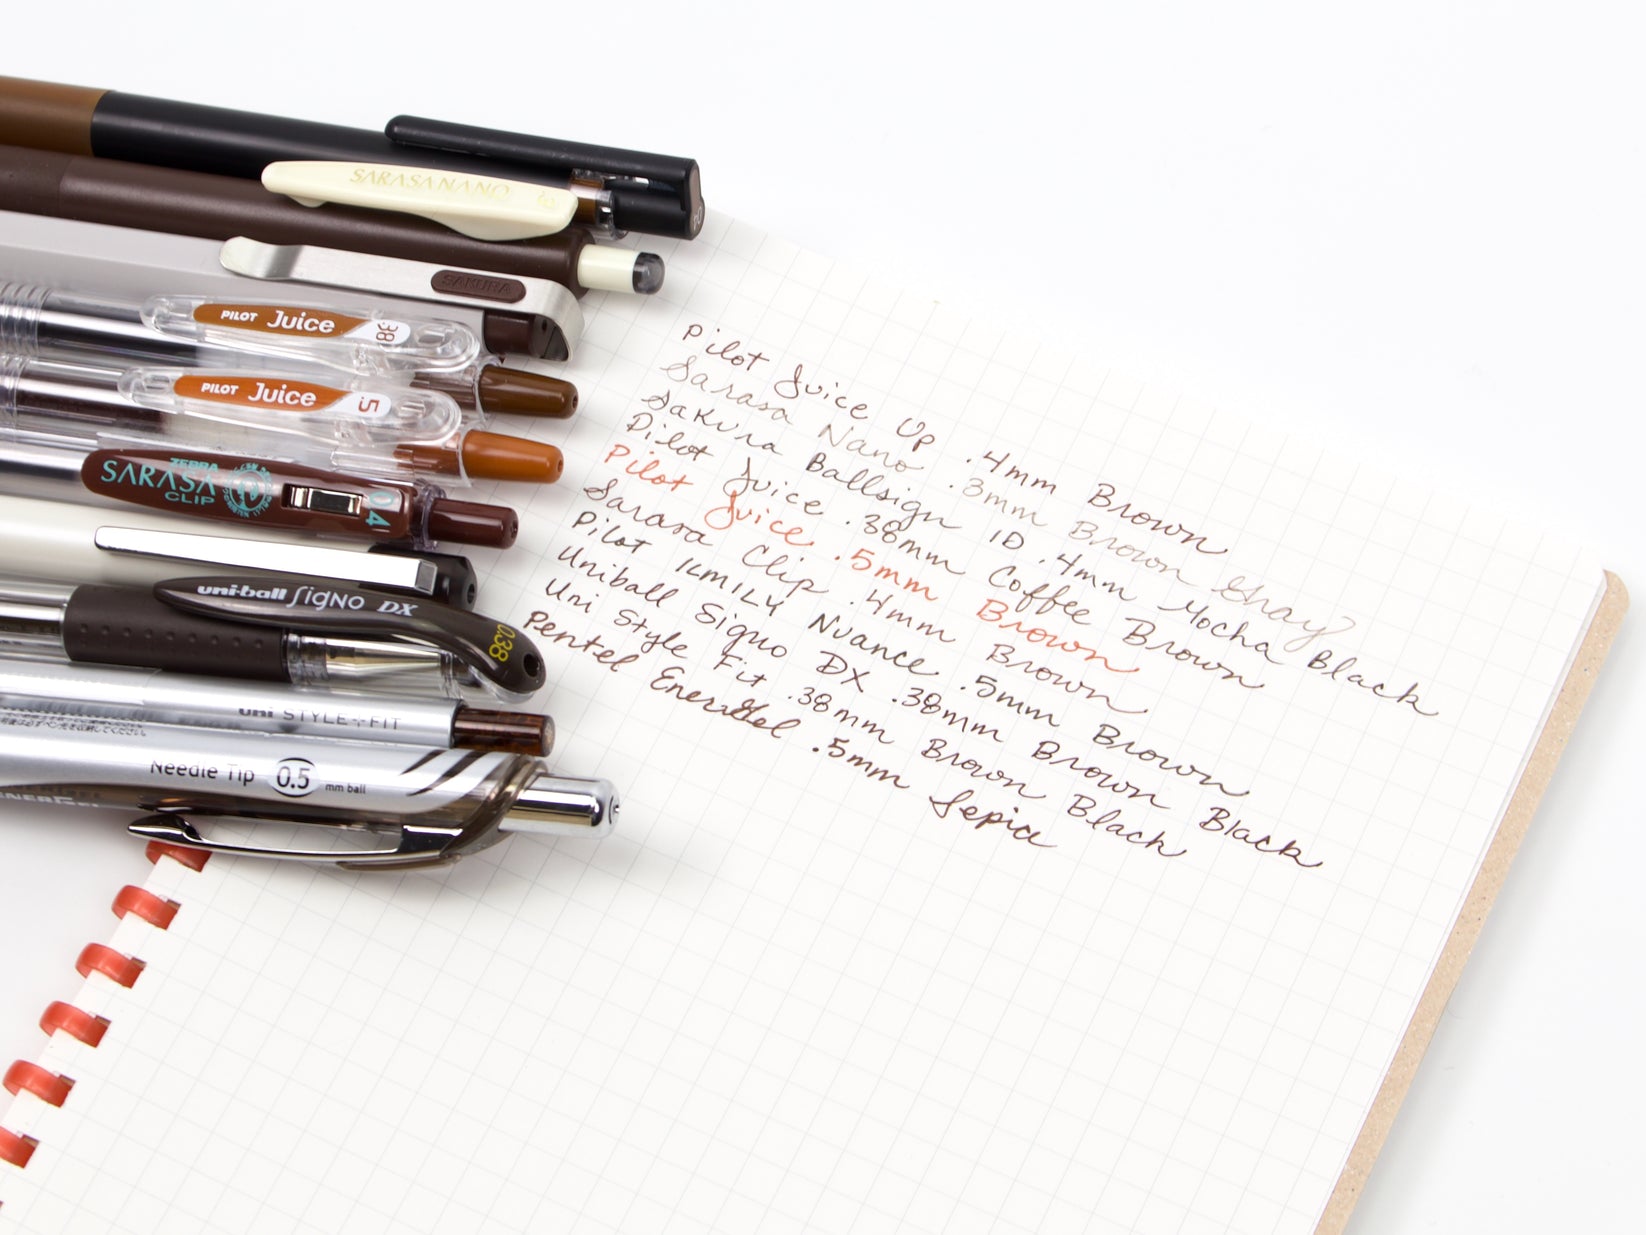 SARASA NANO
SAKURA
PILOT Juice 38
PILOT Juice 5
ZEBRA
SARASA
CLIP
0.4
uni-ball SigNo DX 0.38
uni STYLE+FIT
Needle Tip 0.5 mm ball
Pilot Juice Up .4mm Brown
Sarasa Nano .3mm Brown Gray
Sakura Ballsign iD .4mm Mocha Black
Pilot Juice .38mm Coffee Brown
Pilot Juice .5mm Brown
Sarasa Clip .4mm Brown
Pilot ILMILY Nuance .5mm Brown
Uniball Signo DX .38mm Brown Black
Uni Style Fit .38mm Brown Black
Pentel EnerGel .5mm Sepia